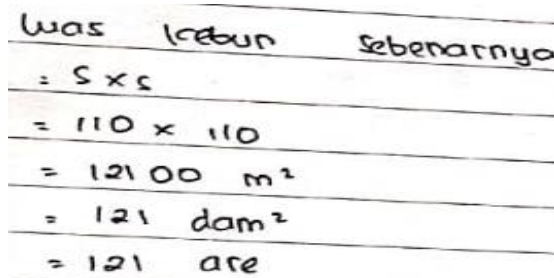 Luas kebun sebenarnya
= s x s
= 110 x 110
= 12100 m²
= 121 dam²
= 121 are